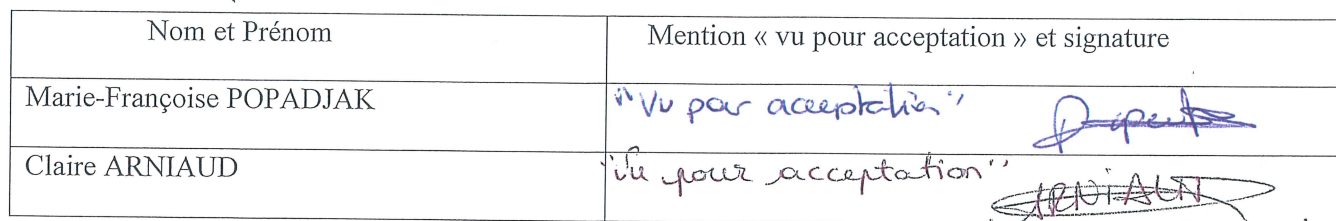 Nom et Prénom
Mention « vu pour acceptation » et signature
Marie-Françoise POPADJAK
"Vu pour acceptation"
Claire ARNIAUD
"Vu pour acceptation"
ARNIAUD